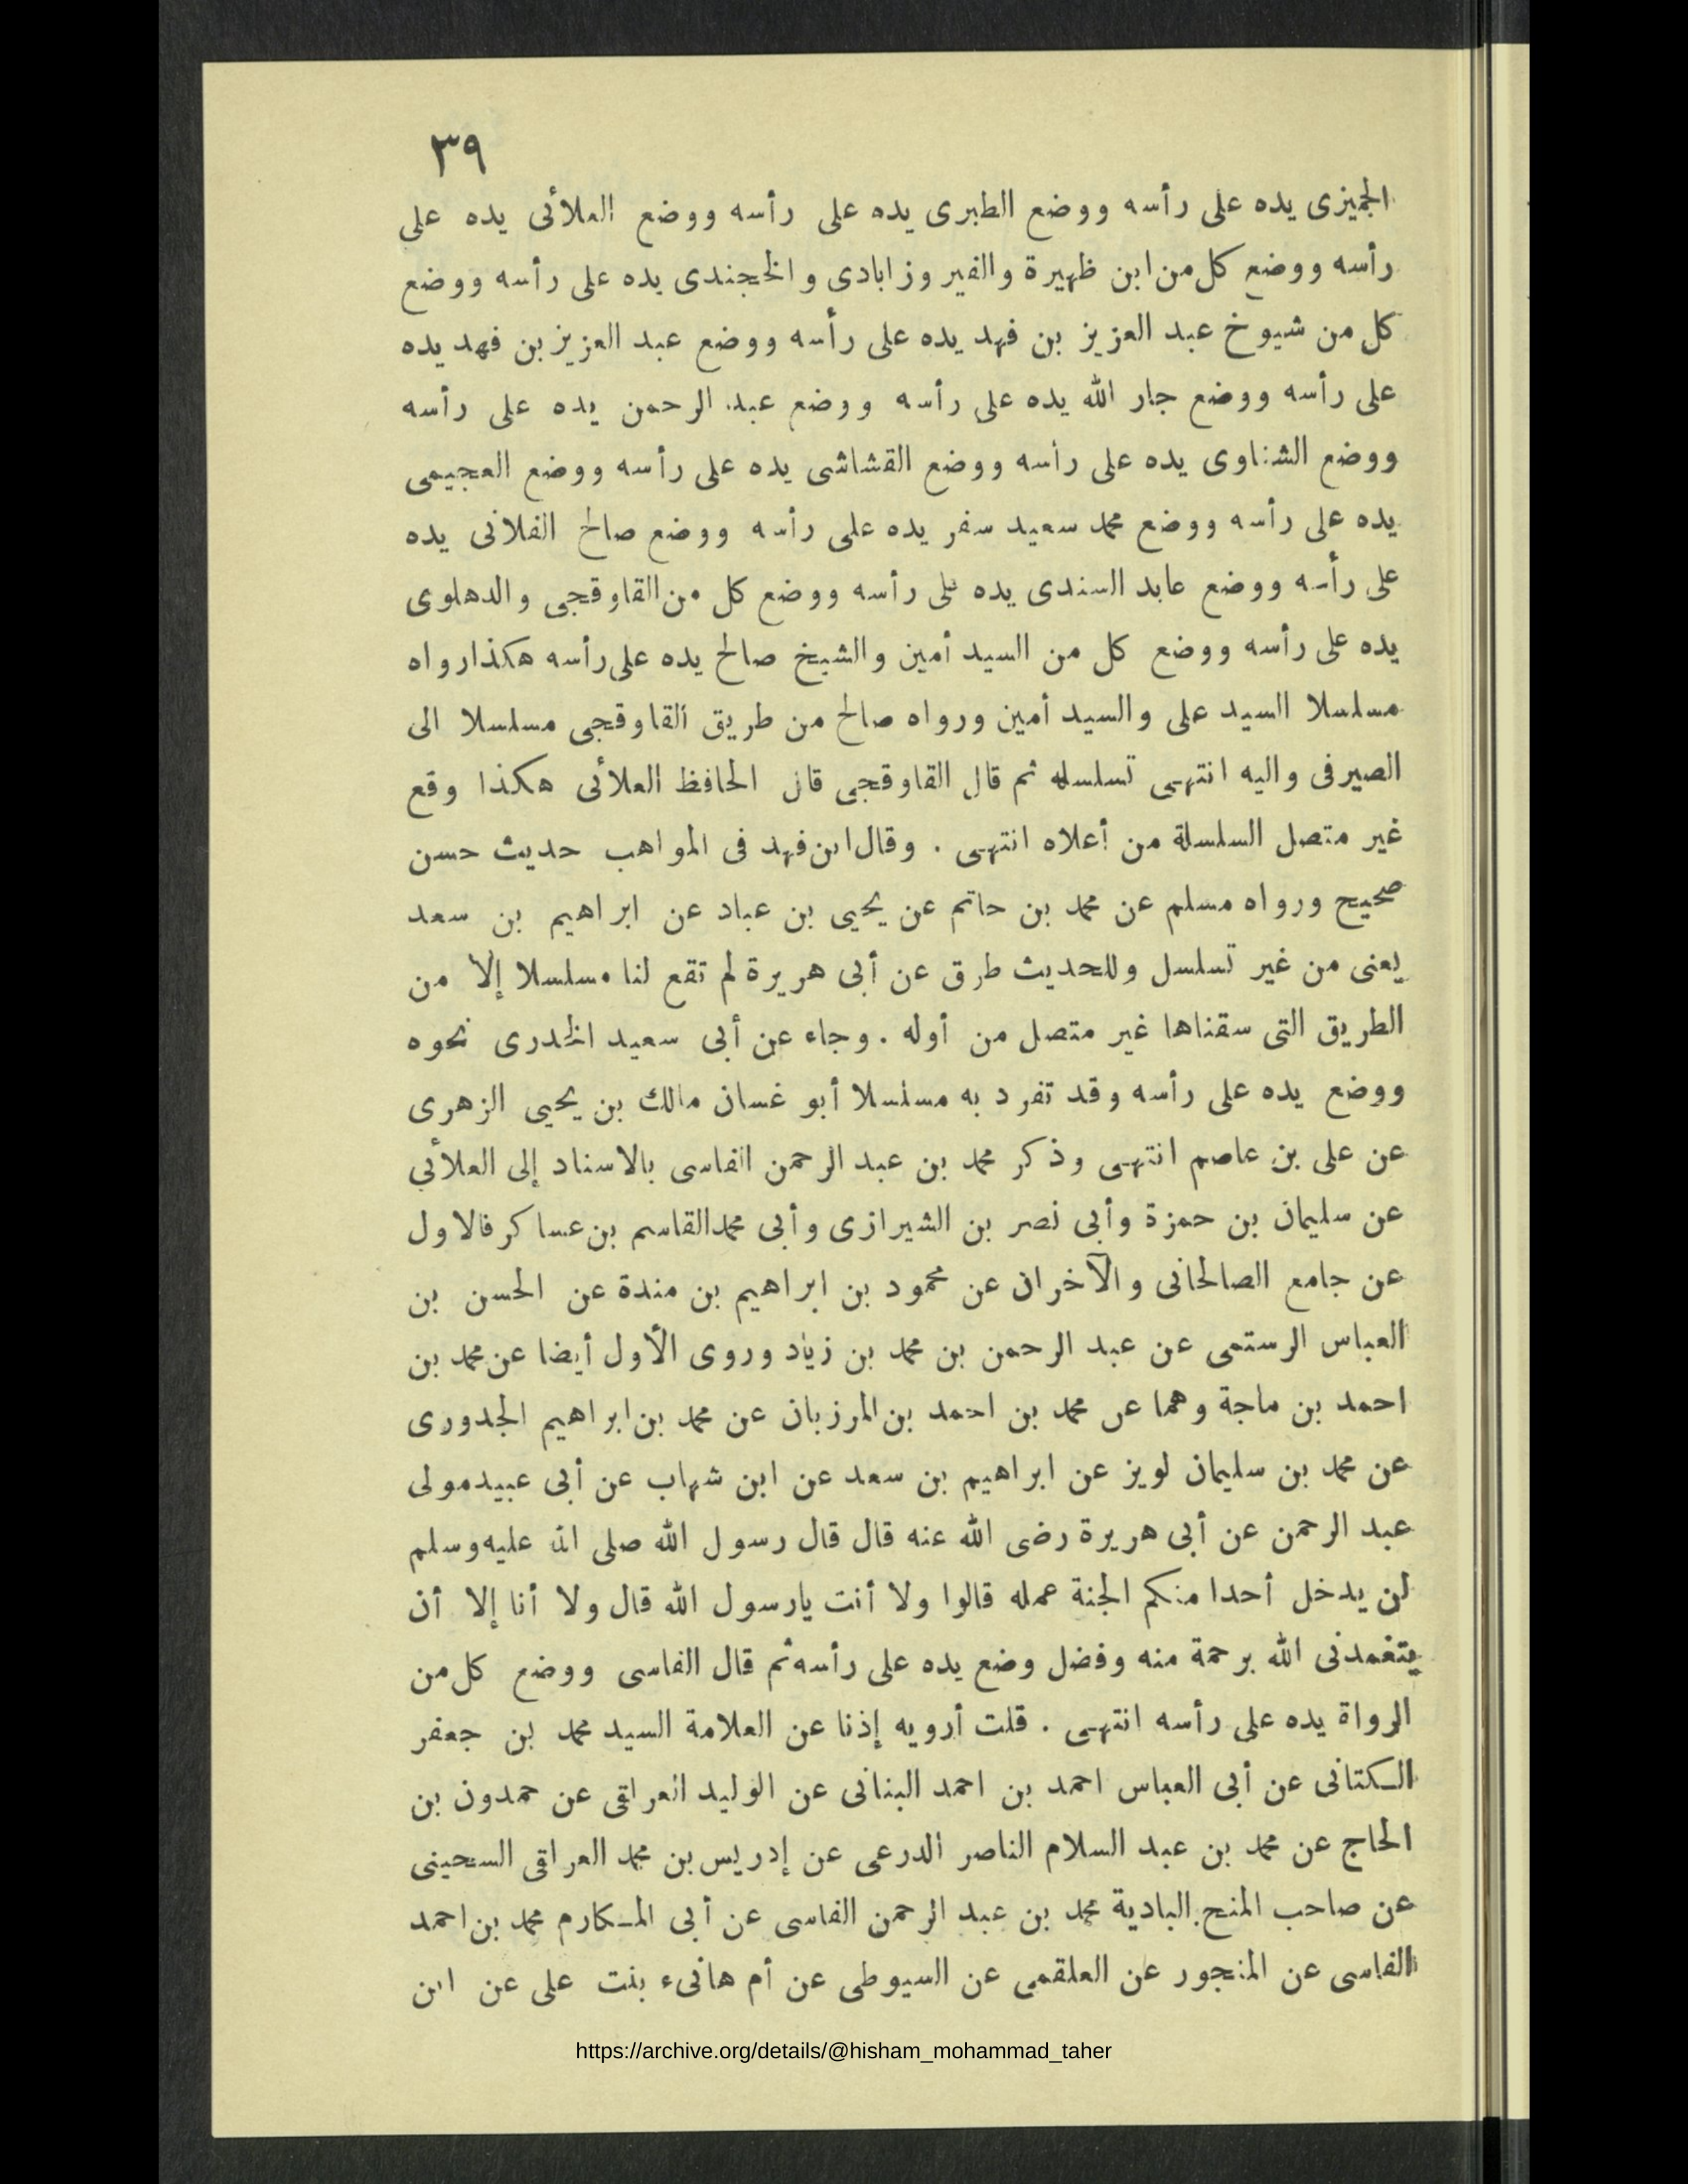 ٣٩
الجميزى يده على رأسه ووضع الطبرى يده على رأسه ووضع العلائى يده على
رأسه ووضع كل من ابن ظهيرة والفيروزابادى والخجندى يده على رأسه ووضع
كل من شيوخ عبد العزيز بن فهد يده على رأسه ووضع عبد العزيز بن فهد يده
على رأسه ووضع جار الله يده على رأسه ووضع عبد الرحمن يده على رأسه
ووضع الشناوى يده على رأسه ووضع القشاشى يده على رأسه ووضع العجيمى
يده على رأسه ووضع محمد سعيد سفر يده على رأسه ووضع صالح الفلانى يده
على رأسه ووضع عابد السندى يده على رأسه ووضع كل من القاوقجى والدهلوى
يده على رأسه ووضع كل من السيد أمين والشيخ صالح يده على رأسه هكذا رواه
مسلسلا السيد على والسيد أمين ورواه صالح من طريق القاوقجى مسلسلا الى
الصيرفى واليه انتهى تسلسله ثم قال القاوقجى قال الحافظ العلائى هكذا وقع
غير متصل السلسلة من أعلاه انتهى . وقال ابن فهد فى المواهب حديث حسن
صحيح ورواه مسلم عن محمد بن حاتم عن يحيى بن عباد عن ابراهيم بن سعد
يعنى من غير تسلسل وللحديث طرق عن أبى هريرة لم تقع لنا مسلسلا إلا من
الطريق التى سقناها غير متصل من أوله . وجاء عن أبى سعيد الخدرى نحوه
ووضع يده على رأسه وقد تفرد به مسلسلا أبو غسان مالك بن يحيى الزهرى
عن على بن عاصم انتهى وذكر محمد بن عبد الرحمن الفاسى بالاسناد إلى العلائي
عن سليمان بن حمزة وأبى نصر بن الشيرازى وأبى محمد القاسم بن عساكر فالاول
عن جامع الصالحانى والآخران عن محمود بن ابراهيم بن مندة عن الحسن بن
العباس الرستمى عن عبد الرحمن بن محمد بن زياد وروى الأول أيضا عن محمد بن
احمد بن ماجة وهما عن محمد بن احمد بن المرزبان عن محمد بن ابراهيم الجدورى
عن محمد بن سليمان لويز عن ابراهيم بن سعد عن ابن شهاب عن أبى عبيد مولى
عبد الرحمن عن أبى هريرة رضى الله عنه قال قال رسول الله صلى الله عليه وسلم
لن يدخل أحدا منكم الجنة عمله قالوا ولا أنت يارسول الله قال ولا أنا إلا أن
يتغمدنى الله برحمة منه وفضل وضع يده على رأسه ثم قال الفاسى ووضع كل من
الرواة يده على رأسه انتهى . قلت أرويه إذنا عن العلامة السيد محمد بن جعفر
الكتانى عن أبى العباس احمد بن احمد البنانى عن الوليد العراقى عن حمدون بن
الحاج عن محمد بن عبد السلام الناصر الدرعى عن إدريس بن محمد العراقى السحينى
عن صاحب المنح البادية محمد بن عبد الرحمن الفاسى عن أبى المكارم محمد بن احمد
الفاسى عن المنجور عن العلقمى عن السيوطى عن أم هانىء بنت على عن ابن
https://archive.org/details/@hisham_mohammad_taher